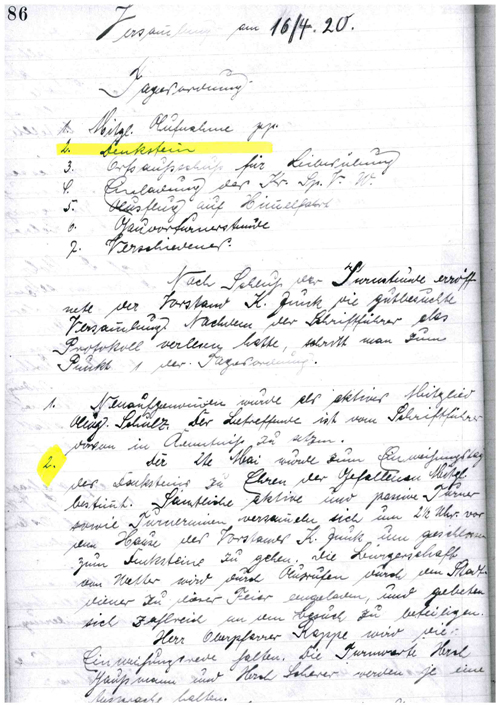 86
Versammlung am 16/4. 20.
Tagesordnung
1. Mitgl. Aufnahme pp.
2. Denkstein
3. Ortsausschuß für Leibesübung
4. Einladung des Kr. Sp. V. W.
5. Ausflug auf Himmelfahrt
6. Gauvorturnerstunde
7. Verschiedenes.
Nach Schluß der Turnstunde eröff-
nete der Vorstand K. Junk die gutbesuchte
Versammlung Nachdem der Schriftführer das
Protokoll verlesen hatte, schritt man zum
Punkt 1 der Tagesordnung.
1. Neuaufgenommen wurde als aktives Mitglied
Aug. Schulz. Der Betreffende ist vom Schriftführer
davon in Kenntniß zu setzen.
2. Der 2te Mai wurde zum Einweihungstag
des Denksteins zu Ehren der Gefallenen Mitgl.
bestimmt. Sämtliche aktive und passive Turner
sowie Turnerinnen versammeln sich um 2½ Uhr vor
dem Hause des Vorstandes K. Junk um geschlossen
zum Denksteine zu gehen. Die Bürgerschaft
von Wetter wird durch Ausrufen durch den Stadt
diener zu dieser Feier eingeladen, und gebeten
sich zahlreich an dem Besuch zu beteiligen.
Herr Oberpfarrer Kappe wird die
Einweihungsrede halten. Die Turnwarte Hrch
Hausmann und Hrch Scherer werden je eine
halten.